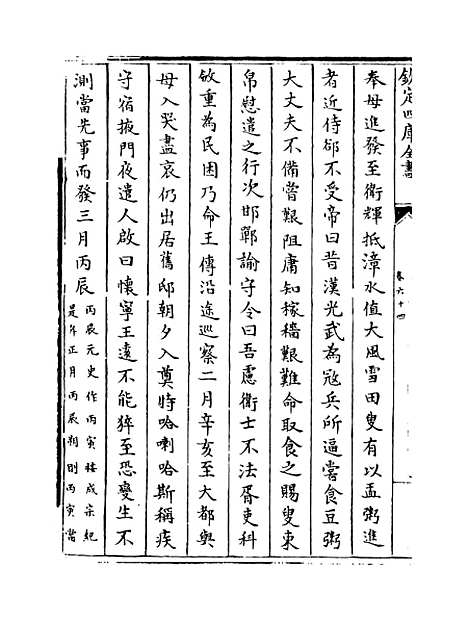 欽定四庫全書
卷六十四
奉母進發至衛輝抵漳水值大風雪田叟有以盂粥進
者近侍郤不受帝曰昔漢光武為寇兵所逼嘗食豆粥
大丈夫不備嘗艱阻庸知稼穡艱難命取食之賜叟束
帛慰遣之行次邯鄲諭守令曰吾慮衛士不法胥吏科
斂重為民困乃命王傅沿途巡察二月辛亥至大都與
母入哭盡哀仍出居舊邸朝夕入奠時哈喇哈斯稱疾
守宿掖門夜遣人啟曰懷寧王逺不能猝至恐變生不
測當先事而發三月丙辰
丙辰元史作丙寅按成宗紀
是年正月丙辰朔則丙寅當